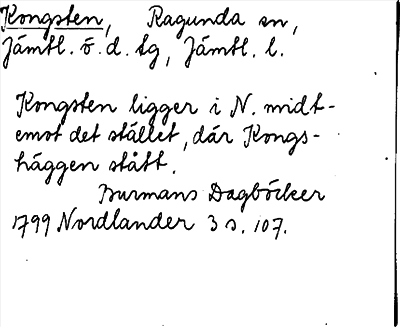 Kongsten, Ragunda sn,
Jämtl. ö. d. tg, Jämtl. l.
Kongsten ligger i N. midt-
emot det stället, där Kongs-
häggen stått.
Burmans Dagböcker
1799 Nordlander 3 s. 107.